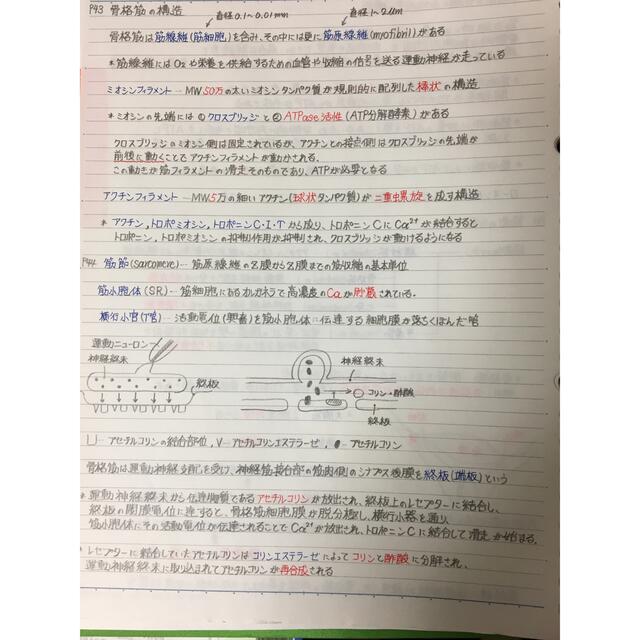 P43 骨格筋の構造 直径0.1~0.01mm 直径1~2μm
骨格筋は筋線維(筋細胞)を含み、その中には更に筋原線維(myofibril)がある
*筋線維にはO₂や栄養を供給するための血管や収縮の信号を送る運動神経が走っている
ミオシンフィラメント…MW50万の太いミオシンタンパク質が規則的に配列した棒状の構造
*ミオシンの先端には①クロスブリッジと②ATPase活性(ATP分解酵素)がある
クロスブリッジのミオシン側は固定されているが、アクチンとの接点側はクロスブリッジの先端が
前後に動くことでアクチンフィラメントが動かされる。
この動きが筋フィラメントの滑走そのものであり、ATPが必要となる
アクチンフィラメント…MW5万の細いアクチン(球状タンパク質)が二重螺旋を成す構造
*アクチン,トロポミオシン,トロポニンC・I・Tから成り、トロポニンCにCa²⁺が結合すると
トロポニン,トロポミオシンの抑制作用が抑制され、クロスブリッジが動けるようになる
P44 筋節(sarcomere)…筋原線維のZ膜からZ膜までの筋収縮の基本単位
筋小胞体(SR)…筋細胞にあるオルガネラで高濃度のCaが貯蔵されている。
横行小管(T管)…活動電位(興奮)を筋小胞体に伝達する細胞膜が落ちくぼんだ管
運動ニューロン
神経終末
終板
神経終末
コリン・酢酸
終板
⊔…アセチルコリンの結合部位, V…アセチルコリンエステラーゼ, ●…アセチルコリン
骨格筋は運動神経支配を受け、神経筋接合部の筋肉側のシナプス後膜を終板(端板)という
*運動神経終末から伝達物質であるアセチルコリンが放出され、終板上のレセプターに結合し、
終板の閾膜電位に達すると、骨格筋細胞膜が脱分極し、横行小管を通り、
筋小胞体にその活動電位が伝達されることでCa²⁺が放出され、トロポニンCに結合して滑走が始まる。
*レセプターに結合していたアセチルコリンはコリンエステラーゼによってコリンと酢酸に分解され、
運動神経終末に取り込まれてアセチルコリンが再合成される